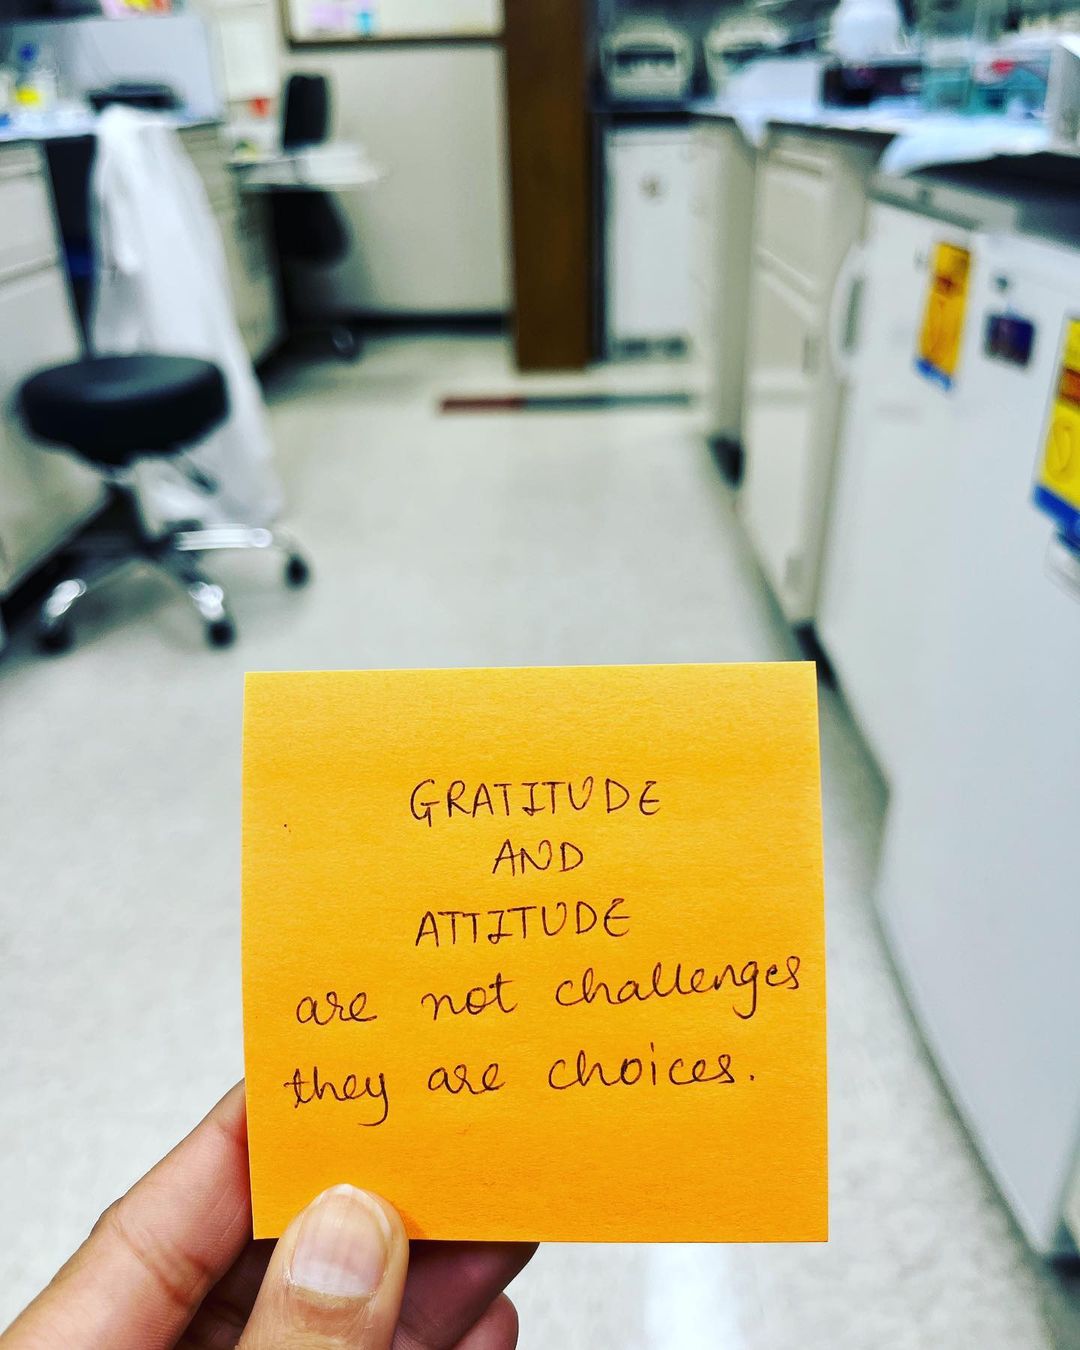 GRATITUDE
AND
ATTITUDE
are not challenges
they are choices.